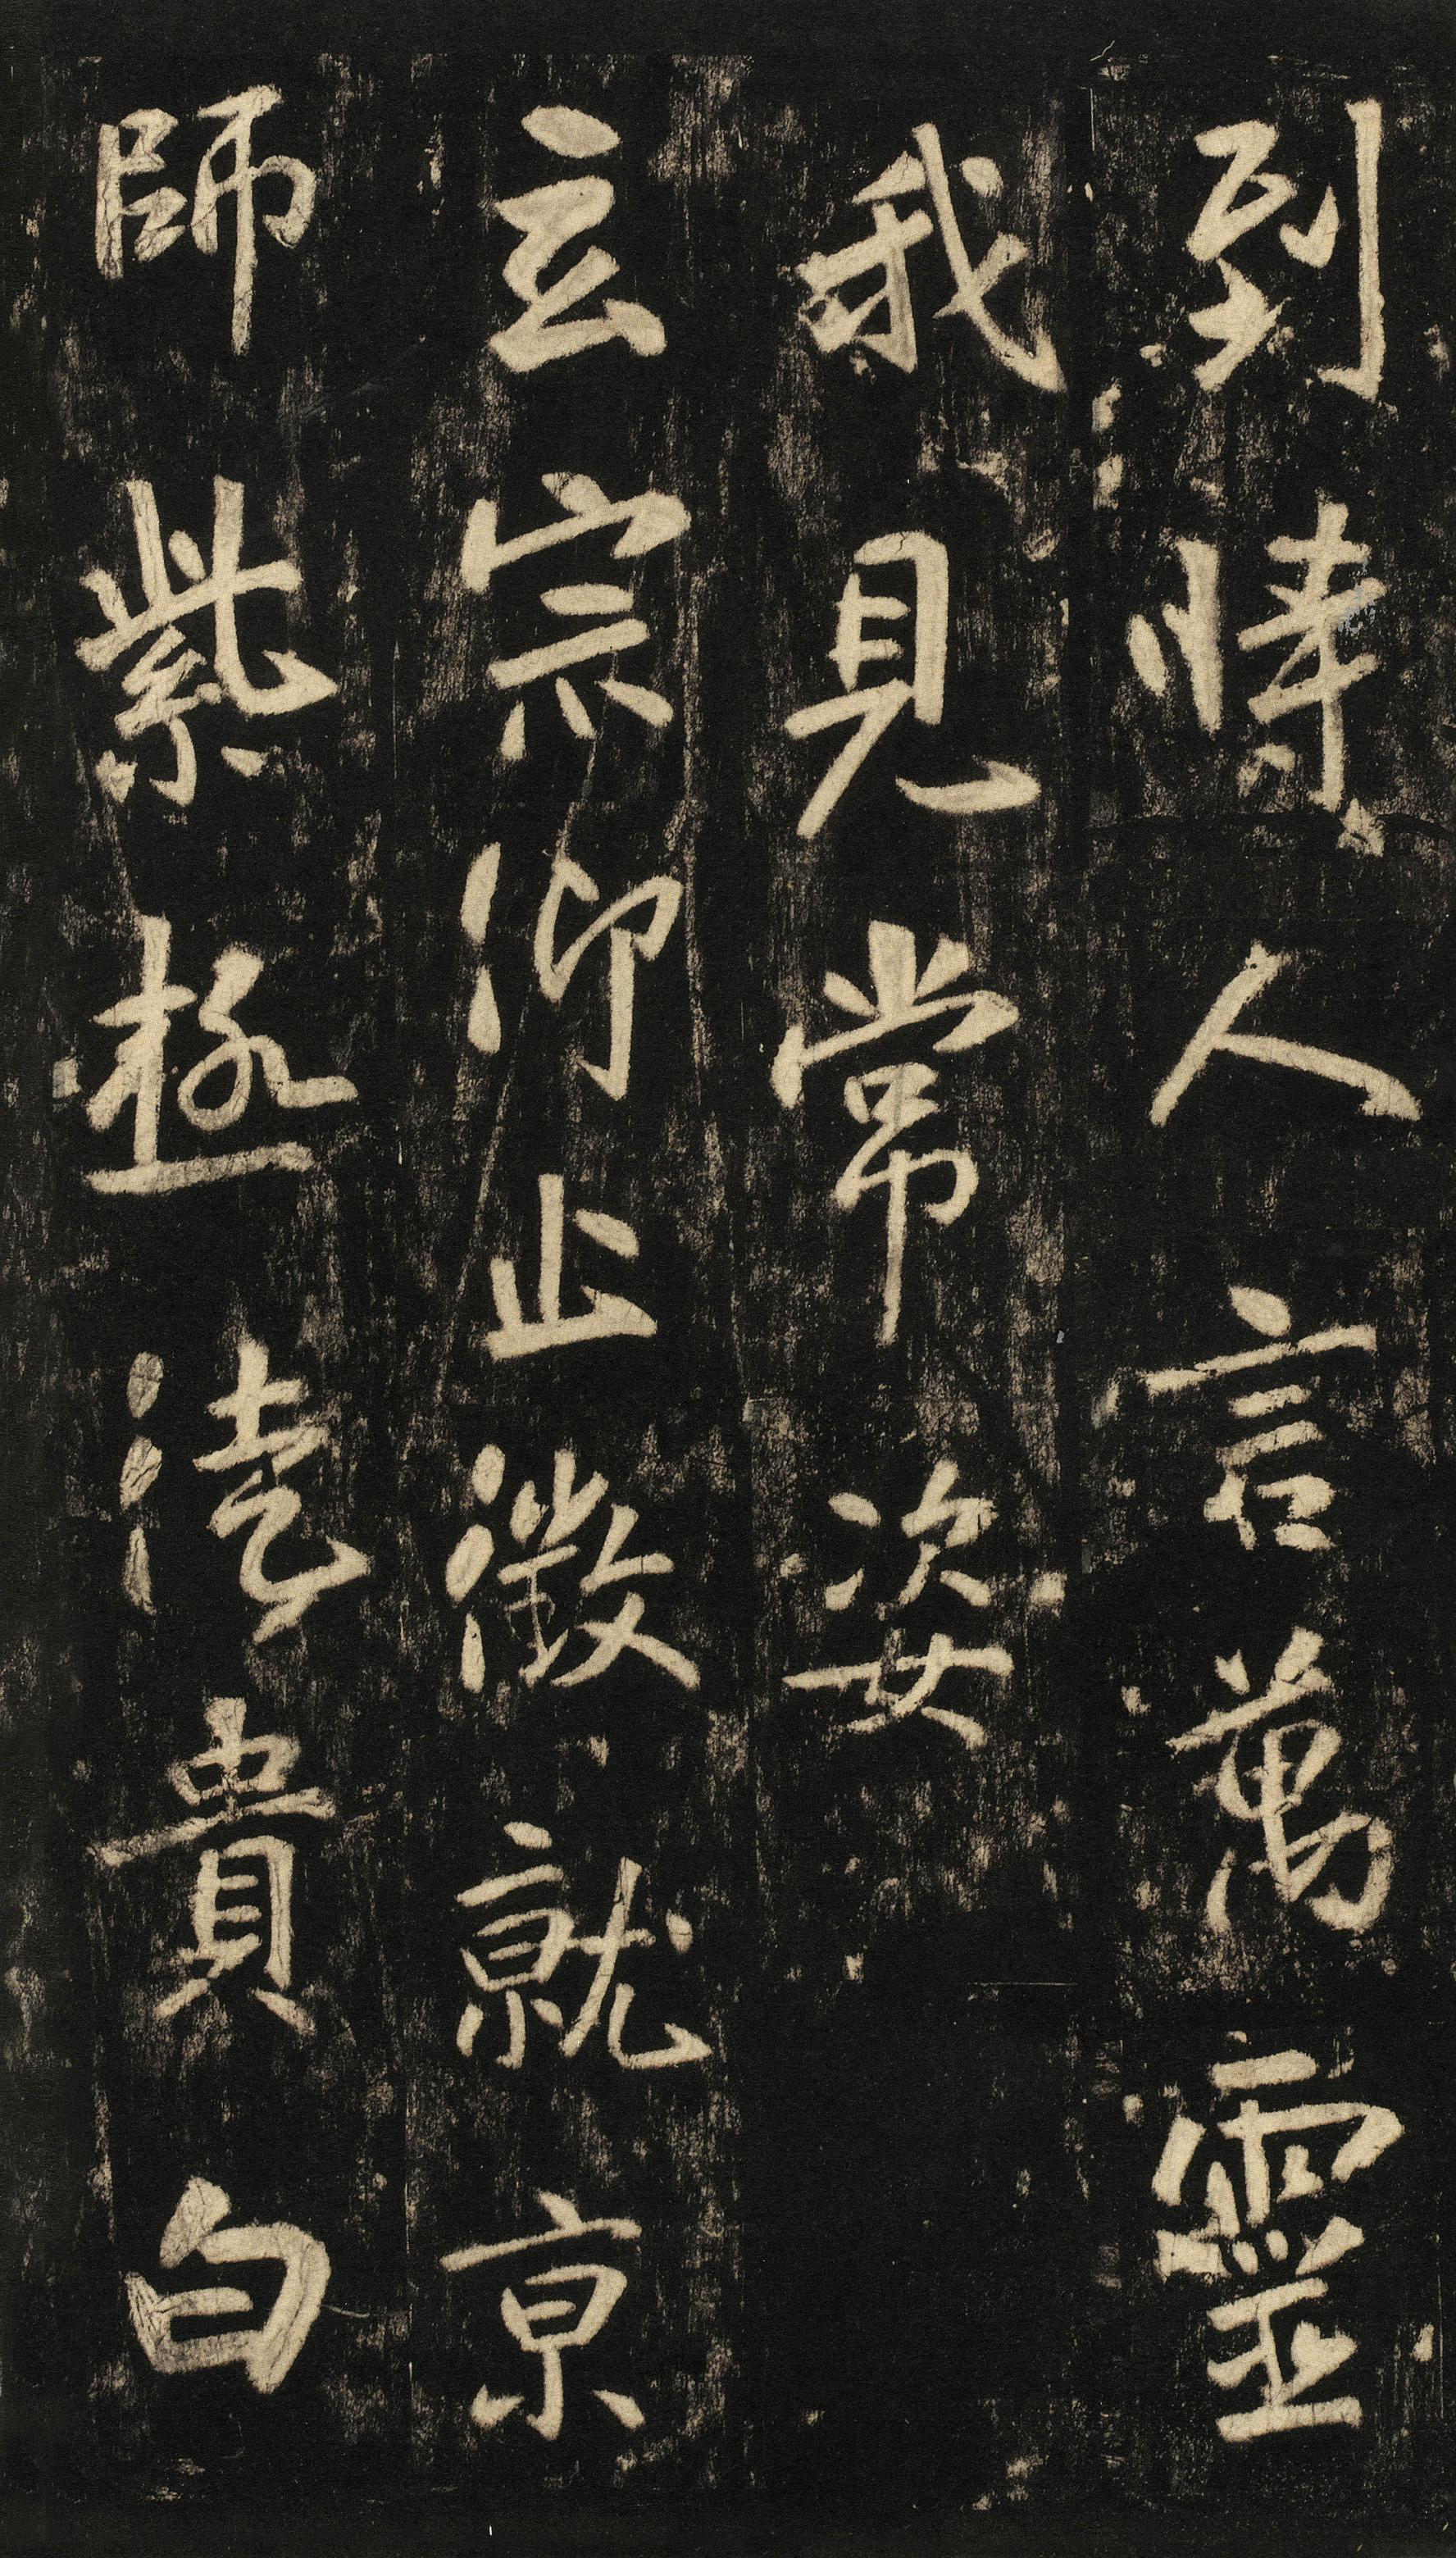 到時人言萬靈
我見常姿
玄宗仰止徵就京
師紫極法貴白